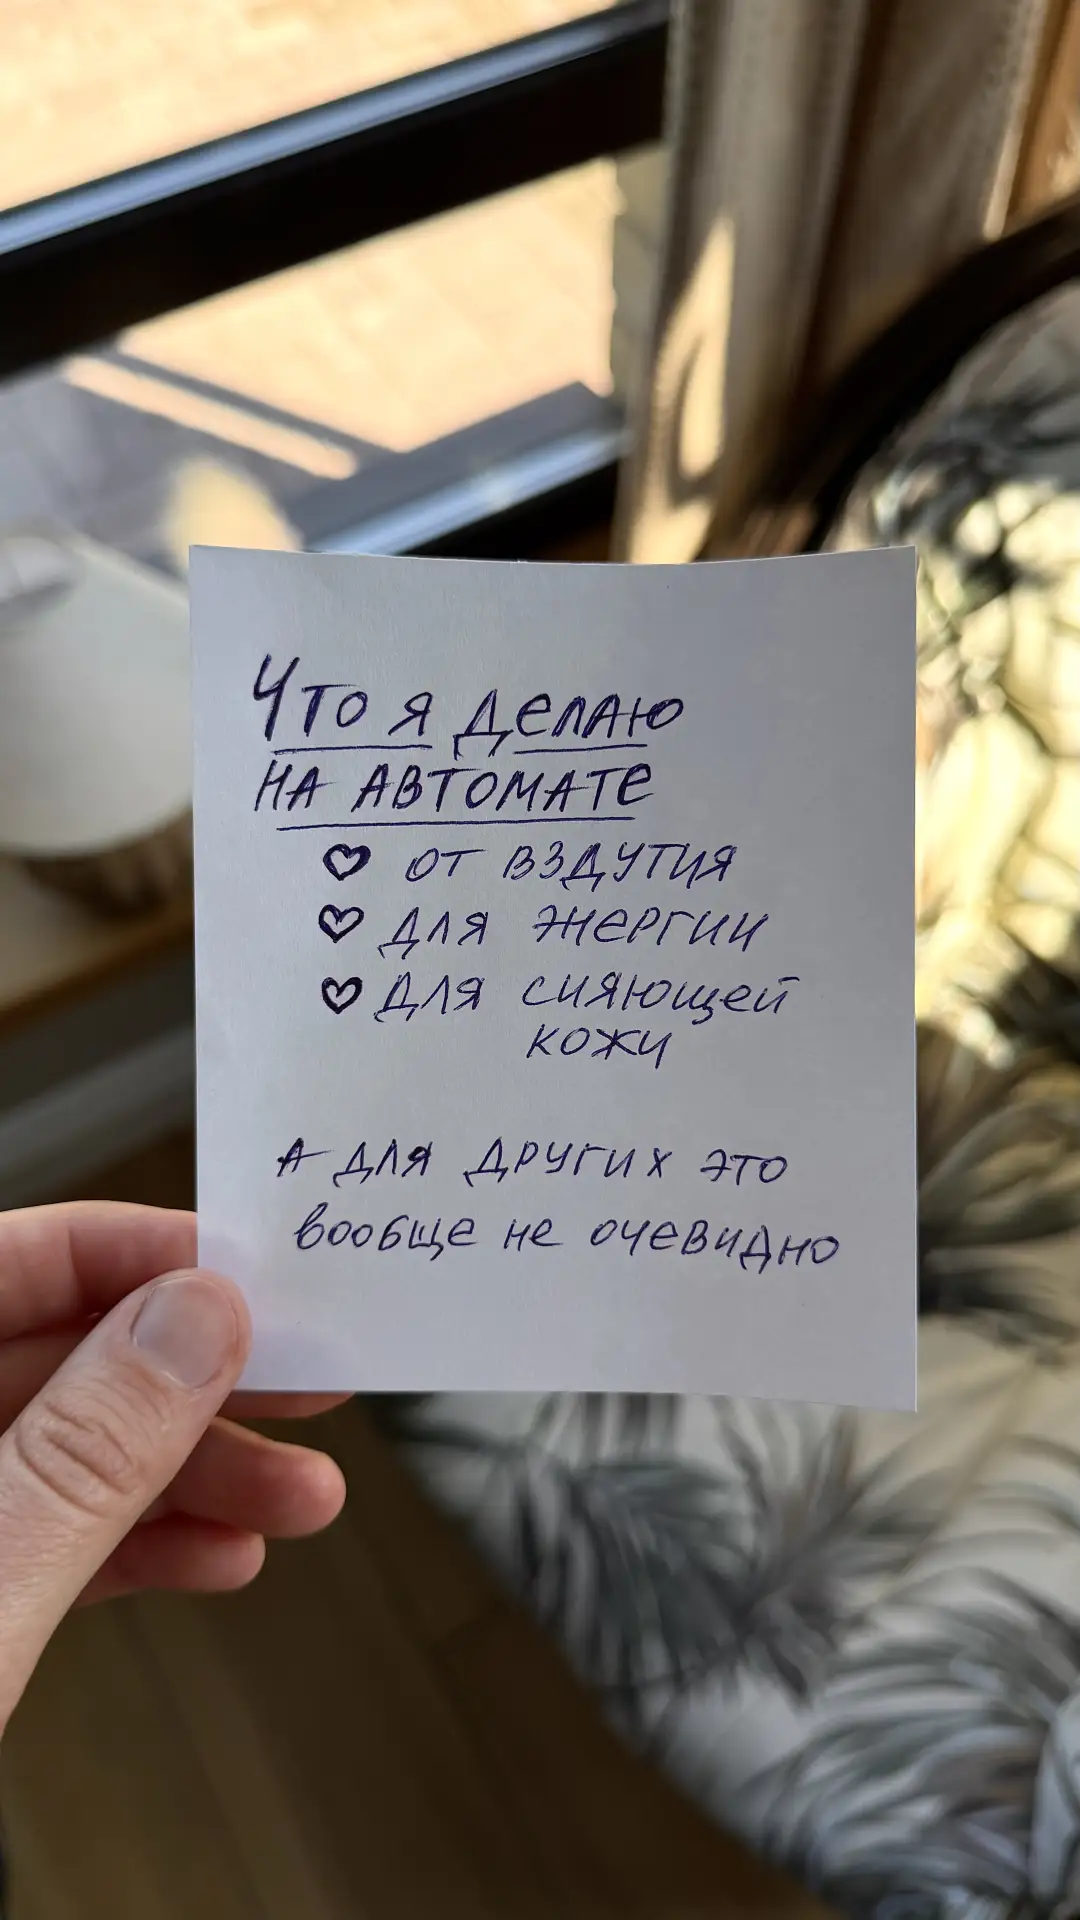 Что я делаю
на автомате
♡ от вздутия
♡ для энергии
♡ для сияющей
кожи
А для других это
вообще не очевидно